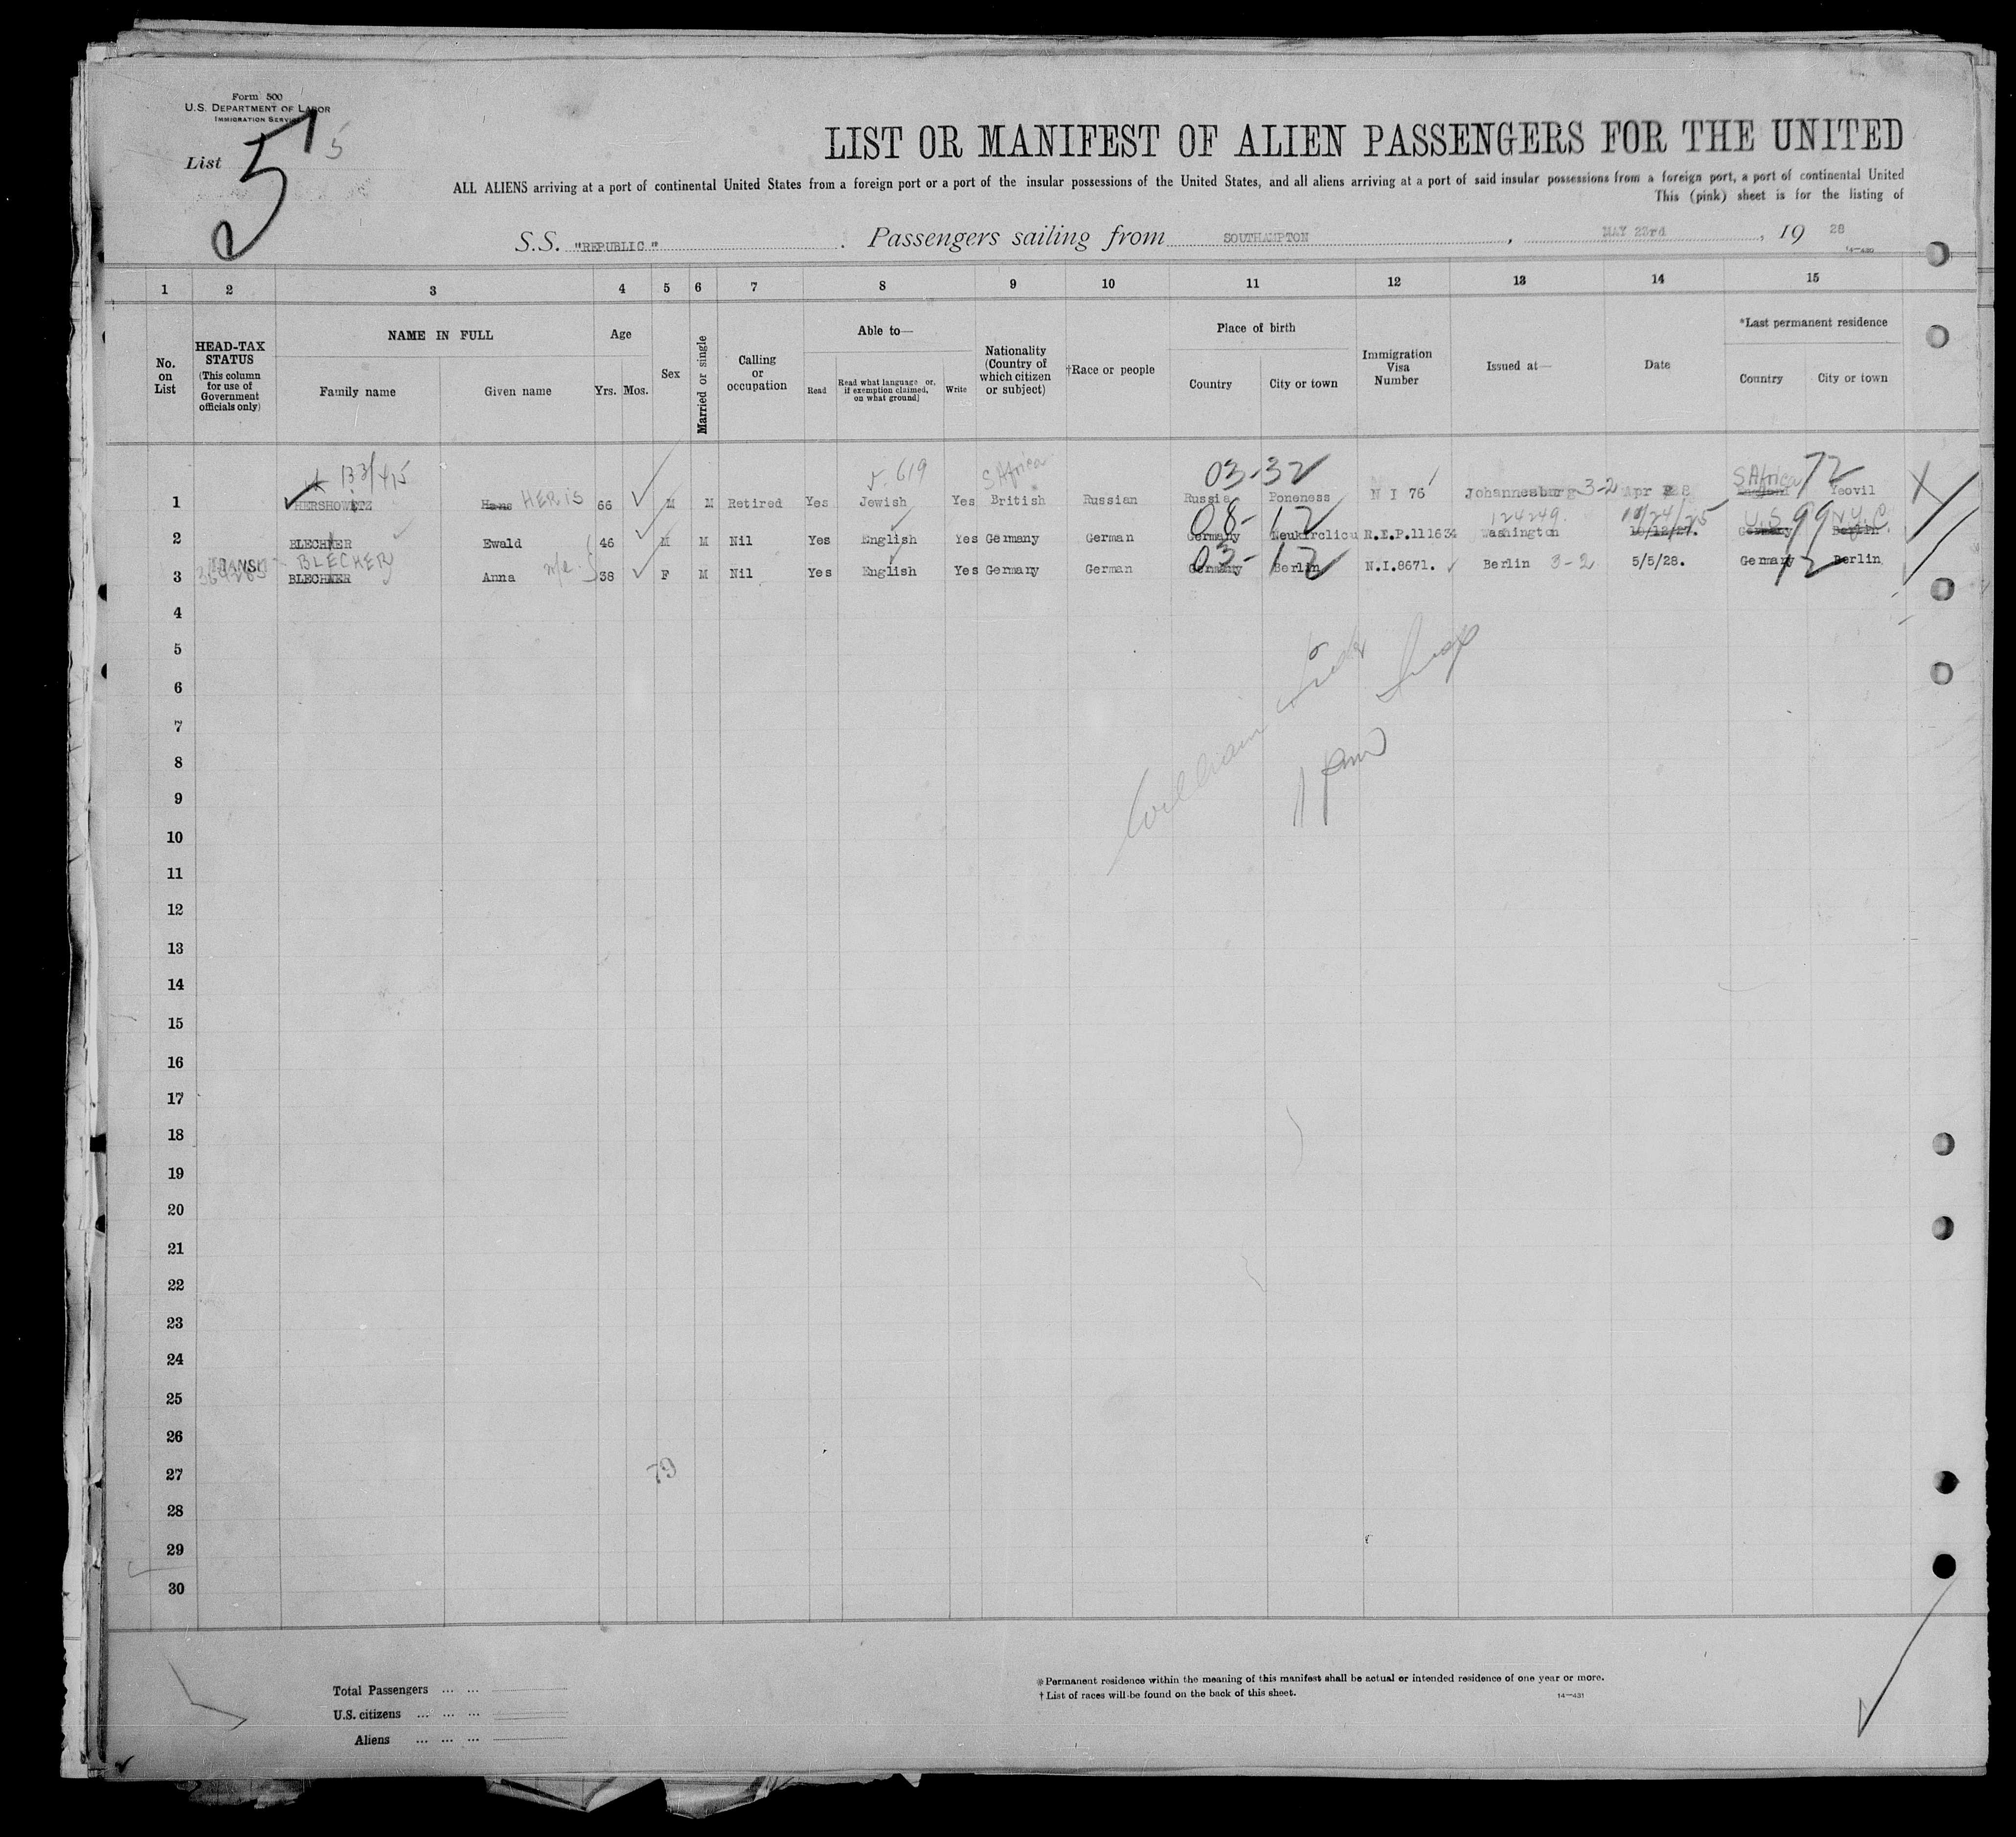 Form 500
U.S. DEPARTMENT OF LABOR
IMMIGRATION SERVICE
List 5 5
LIST OR MANIFEST OF ALIEN PASSENGERS FOR THE UNITED
ALL ALIENS arriving at a port of continental United States from a foreign port or a port of the insular possessions of the United States, and all aliens arriving at a port of said insular possessions from a foreign port, a port of continental United
This (pink) sheet is for the listing of
S.S. "REPUBLIC" . Passengers sailing from SOUTHAMPTON , MAY 23rd , 19 28
14—430
1 2 3 4 5 6 7 8 9 10 11 12 13 14 15
No. on List
HEAD-TAX STATUS (This column for use of Government officials only)
NAME IN FULL
Family name Given name
Age
Yrs. Mos.
Sex
Married or single
Calling or occupation
Able to—
Read Read what language or, if exemption claimed, on what ground] Write
Nationality (Country of which citizen or subject)
†Race or people
Place of birth
Country City or town
Immigration Visa Number
Issued at—
Date
*Last permanent residence
Country City or town
133/415 619 S Africa 03-32 S Africa 72
1 HERSHOWITZ Hans HERIS 66 M M Retired Yes Jewish Yes British Russian Russia Poneness N I 76 Johannesburg 3-2 Apr Yeovil
08-12 124249 10/24/25 U.S. 99 N.Y.C.
2 BLECHNER Ewald 46 M M Nil Yes English Yes Germany German Germany Neukirclicu R.E.P.111634 Washington 10/12/27. Germany Berlin
BLECHER 03-12
3 BLECHNER Anna 38 F M Nil Yes English Yes Germany German Germany Berlin N.I.8671. Berlin 3-2 5/5/28. Germany 12 Berlin
4
5
6
7
William
8
9
10
11
12
13
14
15
16
17
18
19
20
21
22
23
24
25
26
27 79
28
29
30
Total Passengers ... ...
U.S. citizens ... ... ...
Aliens ... ... ...
*Permanent residence within the meaning of this manifest shall be actual or intended residence of one year or more.
† List of races will be found on the back of this sheet. 14—431